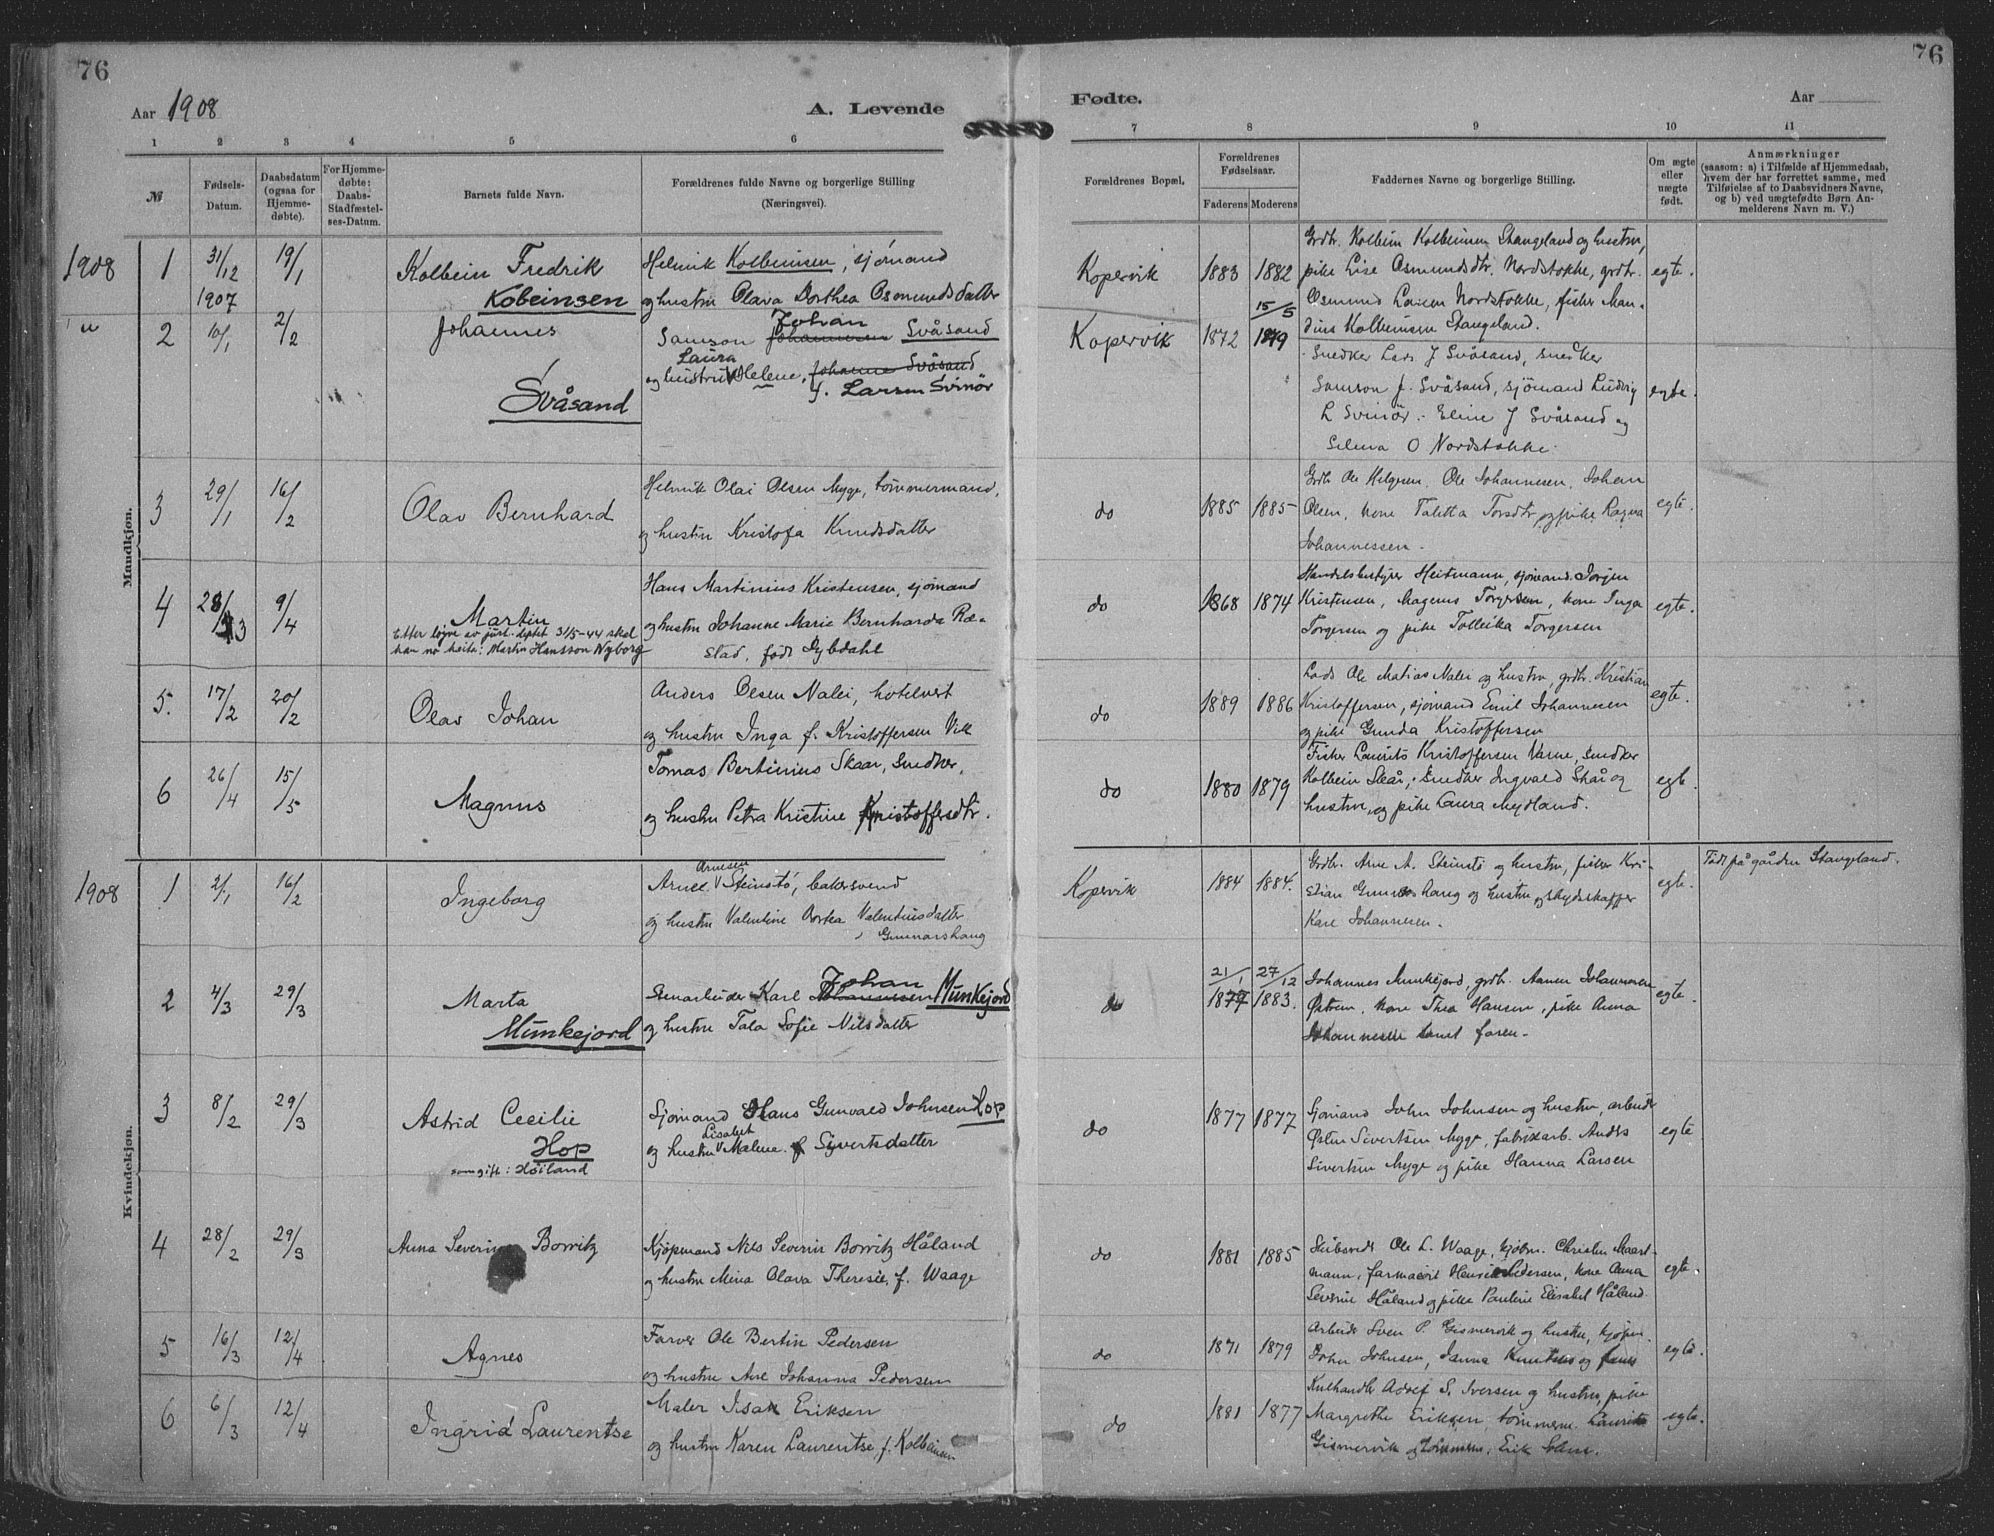 76
76
Aar 1908
A. Levende
Fødte.
Aar
1 2 3 4 5 6 7 8 9 10 11
№
Fødsels-
Datum.
Daabsdatum
(ogsaa for
Hjemme-
døbte).
For Hjemme-
døbte:
Daabs-
Stadfæstel-
ses-Datum.
Barnets fulde Navn.
Forældrenes fulde Navne og borgerlige Stilling
(Næringsvei).
Forældrenes Bopæl.
Forældrenes
Fødselsaar.
Faderens Moderens
Faddernes Navne og borgerlige Stilling.
Om ægte
eller
uægte
født.
Anmærkninger
(saasom: a) i Tilfælde af Hjemmedaab,
hvem der har forrettet samme, med
Tilføielse af to Daabsvidners Navne,
og b) ved uægtefødte Børn An-
melderens Navn m. V.)
Mandkjøn.
1908
1 31/12 1907 19/1
Kolbein Fredrik
Kobeinsen
Helmik Kolbeinsen, sjömand
og hustru Olava Dorthea Osmundsdatter
Kopervik 1883 1882
Grdbr. Kolbein Kolbeinsen Stangeland og hustru,
pike Lise Osmundsdtr. Nordstokke, grdbr.
Osmund Larsen Nordstokke, fisker Man-
dius Kolbeinsen Stangeland.
egte.
2 10/1 2/2
Johannes
Svåsand
Johan
Samson Johannessen Svåsand
Laura
og hustru Helene, Johanne Svåsand
f. Larsen Svinör
Kopervik 1872 15/5 1879
Snedker Lars J Svåsand, snedker
Samson J. Svåsand, sjömand Ludvig
L Svinör. Eline J Svåsand og
Selma O Nordstokke.
egte.
3 29/1 16/2
Olav Bernhard
Helmik Olai Olsen Myge, tömmermand,
og hustru Kristofa Knudsdatter
do 1885 1885
Grdb Ole Helgesen, Ole Johannesen, Johan
Olsen, kone Taletta Torsdtr og pike Ragna
Johannessen.
egte.
4 28/3 9/4
Martin
Etter løyve av just. deptet 31/5-44 skal
han no heita: Martin Hansson Nyborg
Hans Martinius Kristensen, sjömand
og hustru Johanne Marie Bernharda Ræ-
stad, född Dybdahl
do 1868 1874
Handelsbestyrer Heitmann, sjömand Jorgen
Kristensen, Magnus Torgersen, kone Inga
Torgersen og pike Tolleika Torgersen
egte.
5. 17/2 20/2
Olav Johan
Anders Olsen Nalei, hotelvert
og hustru Inga f. Kristoffersen Vik
do 1889 1886
Lods Ole Matias Nalei og hustru, grdbr. Kristian
Kristoffersen, sjömand Emil Johannesen
og pike Gunda Kristoffersen
egte.
6 26/4 15/5
Magnus
Tomas Bertinius Skaar, snedker,
og hustru Petra Kristine Kristoffersdtr.
do 1880 1879
Fisker Laurits Kristoffersen Varne, snedker
Kolbein Skår, snedker Ingvald Skår og
hustru, og pike Laura Mydland.
egte.
Kvindekjøn.
1908
1 2/1 16/2
Ingeborg
Arnesen
Arne Steinstö, bakersvend
og hustru Valentine Dorka Valentinsdatter
Gunnarshaug
Kopervik 1884 1884.
Grdbr. Arne A. Steinstö og hustru, fisker Kri-
stian Gunnarshaug og hustru og skydskaffer
Karl Johannesen.
egte.
Född på gården Stangeland.
2 4/3 29/3
Marta
Munkejord
Johan
Stenarbeider Karl Johannessen Munkejord
og hustru Tala Sofie Nilsdatter
do 21/1 1877 27/12 1883.
Johannes Munkejord, grdb. Aanen Johannesen
Östrem, kone Thea Hansen, pike Anna
Johannesen samt faren.
egte.
3 8/2 29/3
Astrid Cecilie
Hop
som gift: Höiland
Sjömand Hans Gunvald Johnsen Hop
Lisabet
og hustru Malene f Sivertsdatter
do 1877 1877
Sjömand John Johnsen og hustru, arbeider
Östen Sivertsen Myge, fabrikarb. Anders
Sivertsen Myge og pike Hanna Larsen
egte
4 28/2 29/3
Anna Severine Borritz
Kjöpmand Nils Severin Borritz Håland
og hustru Mina Olava Theresie, f. Waage
do 1881 1885
Skibsreder Ole L. Waage, kjöbm. Christen Maart-
mann, farmaceut Henrik Pedersen, kone Anna
Severine Håland og pike Pauline Elisabet Håland
egte.
5 16/3 12/4
Agnes
Farver Ole Bertin Pedersen
og hustru Ane Johanna Pedersen
do 1871 1879
Arbeider Sven P. Gismervik og hustru, kjöpm.
John Johnsen, Janna Knutsen og faren
egte.
6 6/3 12/4
Ingrid Laurentse
Maler Isak Eriksen
og hustru Karen Laurentse, f. Kolbeinsen
do 1881 1877
Kulhandler Adolf S. Iversen og hustru, pike
Margrethe Eriksen, tömmerm. Laurits
Gismervik og Erik
egte.